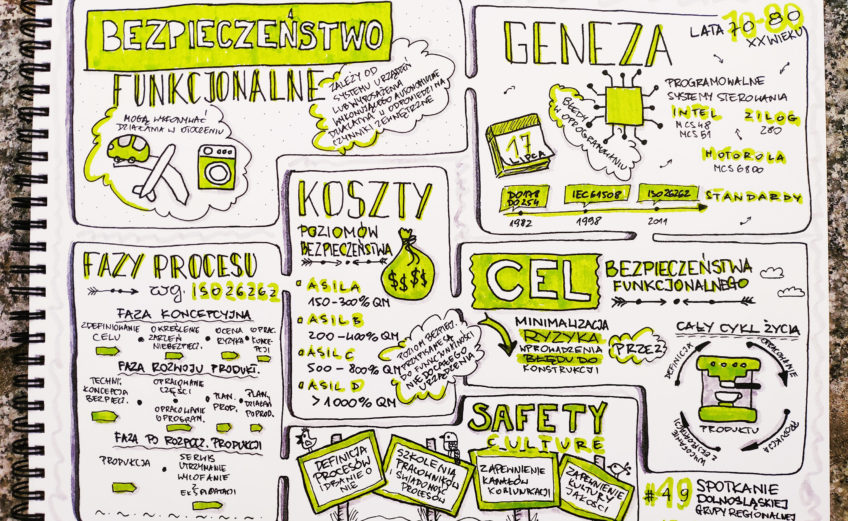 BEZPIECZEŃSTWO
FUNKCJONALNE
ZALEŻY OD
SYSTEMU URZĄDZEŃ
LUB WYPOSAŻENIA
WYKONUJĄCEGO AUTONOMICZNE
DZIAŁANIA W ODPOWIEDZI NA
CZYNNIKI ZEWNĘTRZNE
MOGĄ WYKONYWAĆ
DZIAŁANIA W OTOCZENIU
GENEZA
LATA 70-80
XX WIEKU
PROGRAMOWALNE
SYSTEMY STEROWANIA
INTEL
MCS 48
MCS 51
ZILOG
Z80
MOTOROLA
MCS 6800
BŁĘDY
OPROGRAMOWANIU
17
LIPCA
DO178
DO254
IEC 61508
ISO 26262
STANDARDY
1982
1998
2011
KOSZTY
POZIOMÓW
BEZPIECZEŃSTWA
ASIL A
150-300% QM
ASIL B
200-400% QM
ASIL C
500-800% QM
ASIL D
>1000% QM
POZIOM BEZPIECZ.
PRZYPISANE SĄ
DO FUNKCJONALNOŚCI
NIE DO CAŁEGO
URZĄDZENIA
FAZY PROCESU
wg. ISO 26262
FAZA KONCEPCYJNA
ZDEFINIOWANIE
CELU
OKREŚLENIE
ZDARZEŃ
NIEBEZPIECZ.
OCENA
RYZYKA
OPRAC.
KONCE-
PCJI
FAZA ROZWOJU PRODUKT.
TECHN.
KONCEPCJA
BEZPIECZ.
OPRACOWANIE
CZĘŚCI
OPRACOWANIE
OPROGRAM.
PLAN.
PROD.
PLAN.
DZIAŁAŃ
PO PROD.
FAZA PO ROZPOCZ. PRODUKCJI
PRODUKCJA
SERWIS
UTRZYMANIE
WYCOFANIE
Z
EKSPLOATACJI
CEL
BEZPIECZEŃSTWA
FUNKCJONALNEGO
MINIMALIZACJA
RYZYKA
WPROWADZENIA
BŁĘDU DO
KONSTRUKCJI
PRZEZ:
CAŁY CYKL ŻYCIA
DEFINICJA
OPRACOWANIE
PRODUKCJA
PRODUKTU
SAFETY
CULTURE
DEFINICJA
PROCESÓW
I DBANIE O
NIE
SZKOLENIA
PRACOWNIKÓW
I ŚWIADOMOŚĆ
PROCESÓW
ZAPEWNIENIE
KANAŁÓW
KOMUNIKACJI
ZAPEWNIENIE
KULTURY
JAKOŚCI
#49 SPOTKANIE
DOLNOŚLĄSKIEJ
GRUPY REGIONALNEJ